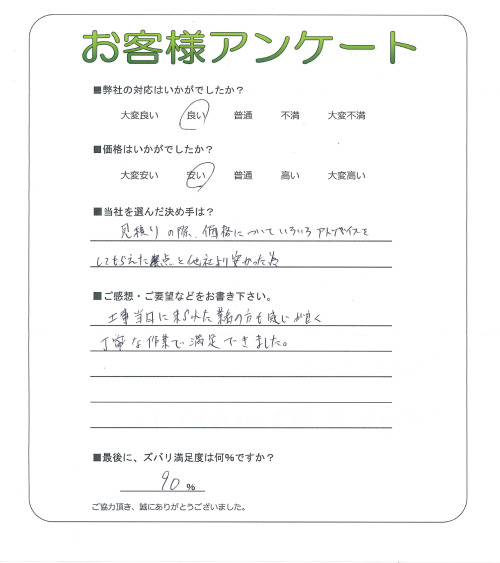 お客様アンケート
■弊社の対応はいかがでしたか？
大変良い 良い 普通 不満 大変不満
■価格はいかがでしたか？
大変安い 安い 普通 高い 大変高い
■当社を選んだ決め手は？
見積りの際、価格についていろいろアドバイスを
してもらえた点と他社より安かった為
■ご感想・ご要望などをお書き下さい。
工事当日に来られた業者の方も感じが良く
丁寧な作業で満足できました。
■最後に、ズバリ満足度は何％ですか？
90 %
ご協力頂き、誠にありがとうございました。